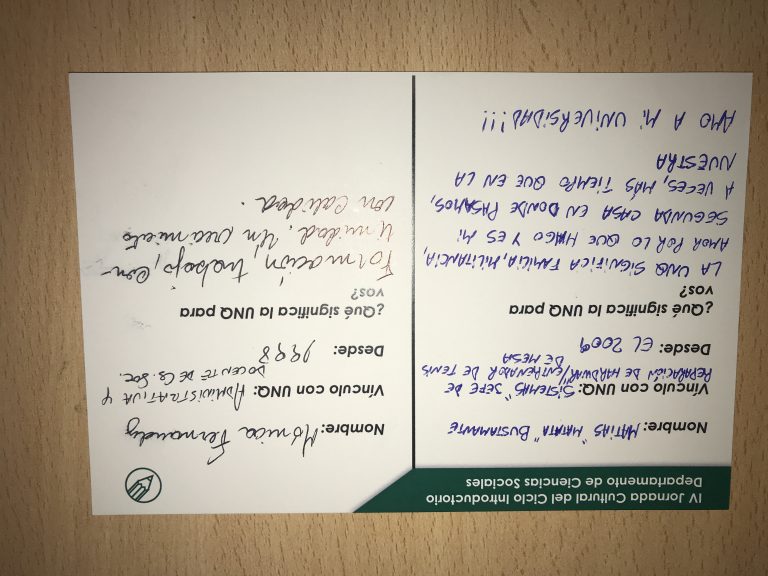 IV Jornada Cultural del Ciclo Introductorio
Departamento de Ciencias Sociales
Nombre: MATIAS "MATATA" BUSTAMANTE
Vínculo con UNQ: SISTEMAS "JEFE DE
REPARACIÓN DE HARDWARE"/ENTRENADOR DE TENIS
DE MESA
Desde: EL 2009
¿Qué significa la UNQ para
vos?
LA UNQ SIGNIFICA FAMILIA, MILITANCIA,
AMOR POR LO QUE HAGO Y ES MI
SEGUNDA CASA EN DONDE PASAMOS,
A VECES, MÁS TIEMPO QUE EN LA
NUESTRA
AMO A MI UNIVERSIDAD!!!
Nombre: Mónica Fernandez
Vínculo con UNQ: ADMINISTRATIVA Y
DOCENTE DE CS. SOC.
Desde: 1998
¿Qué significa la UNQ para
vos?
Formación, trabajo, con-
unidad. Un crecimiento
con calidad.